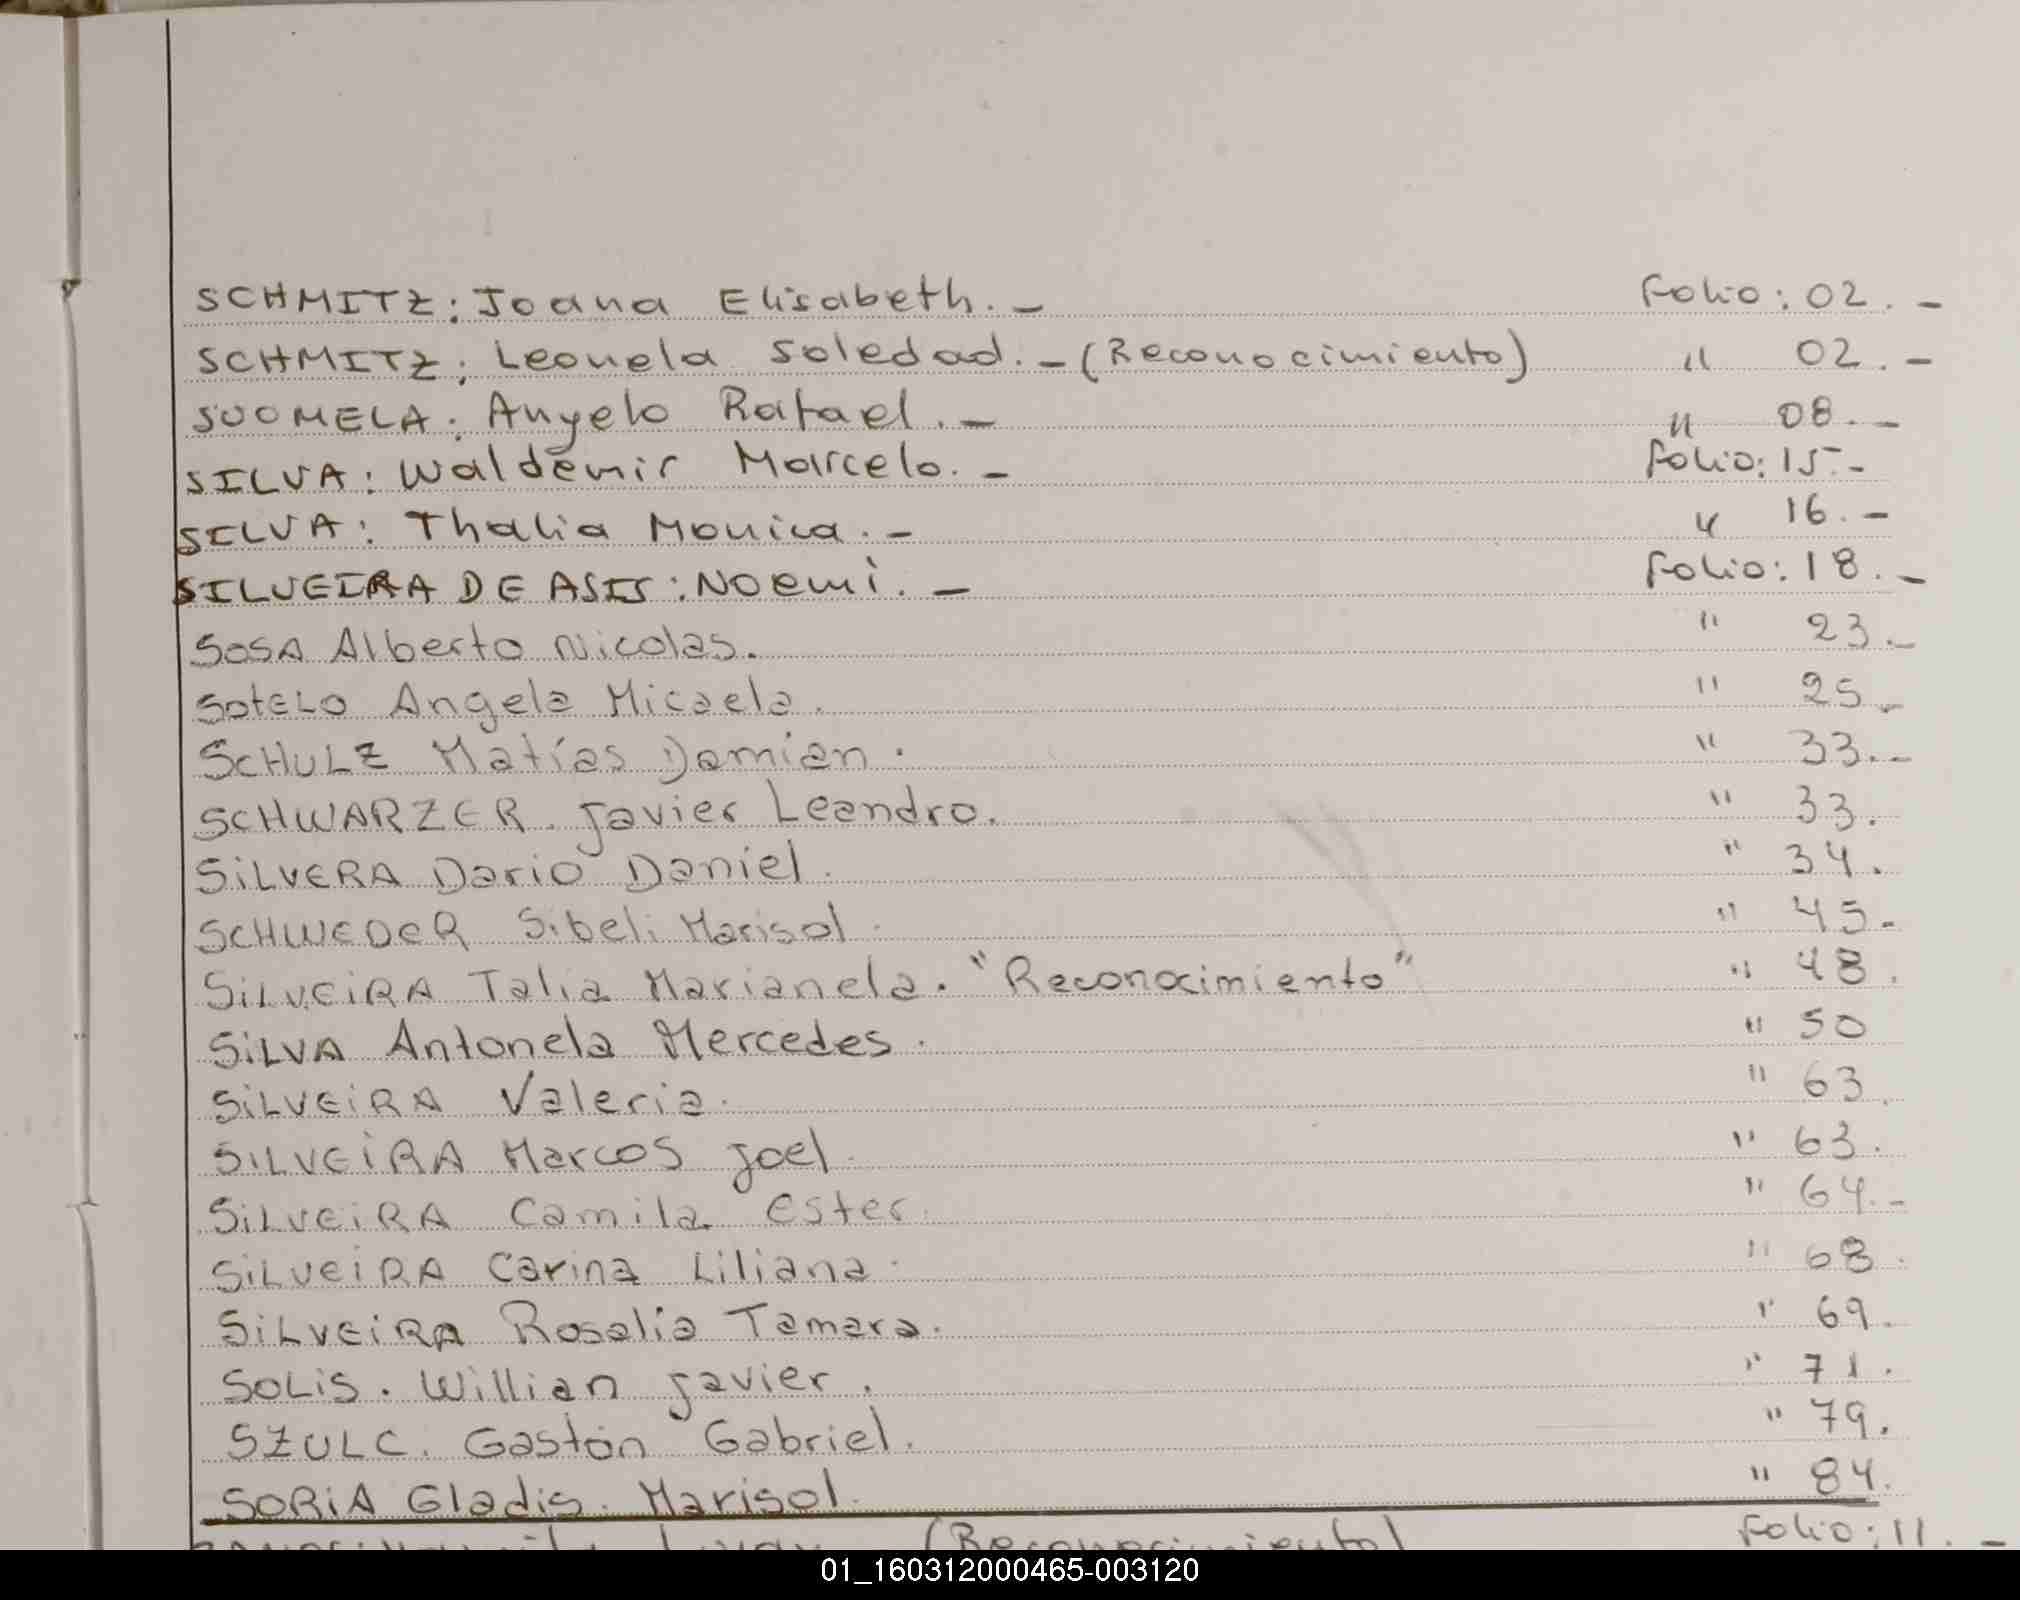 SCHMITZ: Joana Elisabeth.- Folio: 02.-
SCHMITZ: Leonela Soledad.-(Reconocimiento) " 02.-
SUOMELA: Angelo Rafael.- " 08.-
SILVA: Waldemir Marcelo.- Folio: 15.-
SILVA: Thalia Monica.- " 16.-
SILVEIRA DE ASIS: Noemi.- Folio: 18.-
SOSA Alberto Nicolas. " 23.-
SOTELO Angela Micaela. " 25.-
SCHULZ Matías Damian. " 33.-
SCHWARZER. Javier Leandro. " 33.
SiLVERA Dario Daniel. " 34.
SCHWEDER Sibeli Marisol. " 45.-
SiLVEiRA Talia Marianela. "Reconocimiento" " 48.
SiLVA Antonela Mercedes. " 50
SiLVEiRA Valeria. " 63.
SILVEiRA Marcos Joel. " 63.
SiLVEiRA Camila Ester. " 64.-
SiLVEiRA Carina Liliana. " 68.
SiLVEiRA Rosalia Tamara. " 69.
SOLiS. Willian Javier. " 71.
SZULC. Gastón Gabriel. " 79.
SORiA Gladis. Marisol. " 84.
(Reconocimiento) Folio: 11.-
01_160312000465-003120